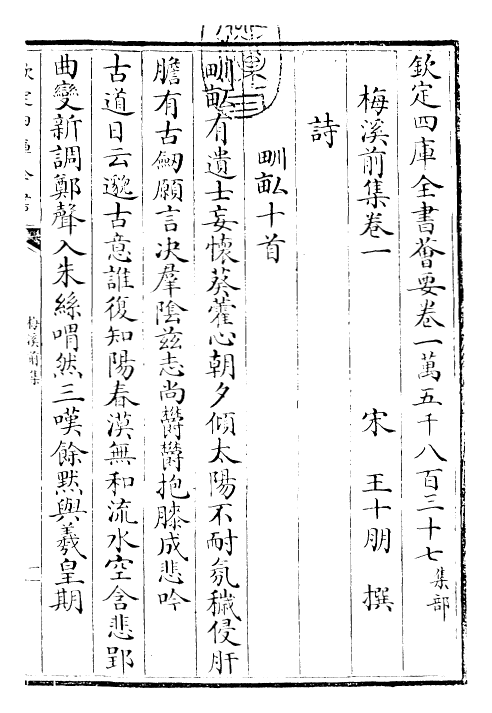 欽定四庫全書薈要卷一萬五千八百三十七集部
梅溪前集卷一
宋 王十朋 撰
詩
畎畝十首
畎畝有遺士妄懷葵藿心朝夕傾太陽不耐氛穢侵肝
膽有古劒願言决羣陰兹志尚欝欝抱膝成悲吟
古道日云邈古意誰復知陽春漠無和流水空含悲郢
曲變新調鄭聲入朱絲喟然三嘆餘黙與羲皇期
梅溪前集
一